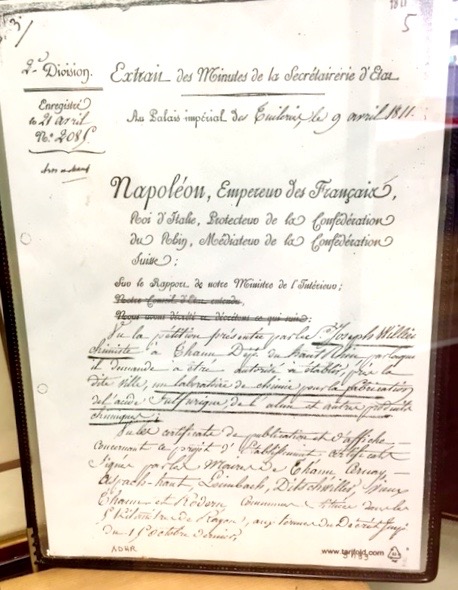 3/
1811
5
2e Division.
Extrait des Minutes de la Secrétairerie d'Etat
Enregistré
le 21 avril
No. 2085
Au Palais impérial des Tuileries, le 9 avril 1811.
Napoléon, Empereur des Français,
Roi d'Italie, Protecteur de la Confédération
du Rhin, Médiateur de la Confédération
Suisse;
Sur le Rapport de notre Ministre de l'Intérieur;
Notre Conseil d'Etat entendu,
Nous avons décrété et décrétons ce qui suit:
Vu la pétition présentée par le Sr. Joseph Willien
chimiste à Thann Dépt. du haut Rhin par laquelle
il demande à être autorisé à établir, près la
dite ville, un laboratoire de chimie pour la fabrication
de l'acide Sulfurique, de l'alun et autres produits
chimiques;
Vu les certificats de publication et d'affiche
concernant ce projet d'Etablissement, certificats
Signés par les Maires de Thann Cernay,
aspach-haut, Leimbach, Bitschwiller, vieux
Thann et Rodern, communes situées dans le
Kilomètre de Rayon, aux termes du Décret Impal
du 15 Octobre dernier
ADHR
www.tarifold.com